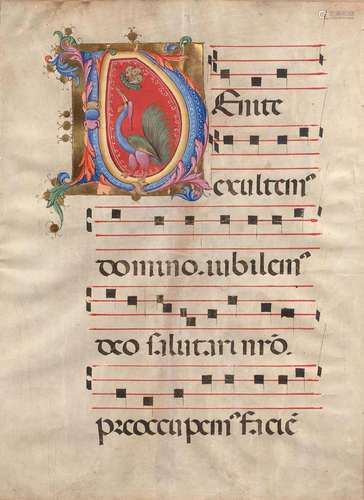 Venite
exultemꝰ
domino. iubilemꝰ
deo salutari nr̄o.
preoccupemꝰ faciē